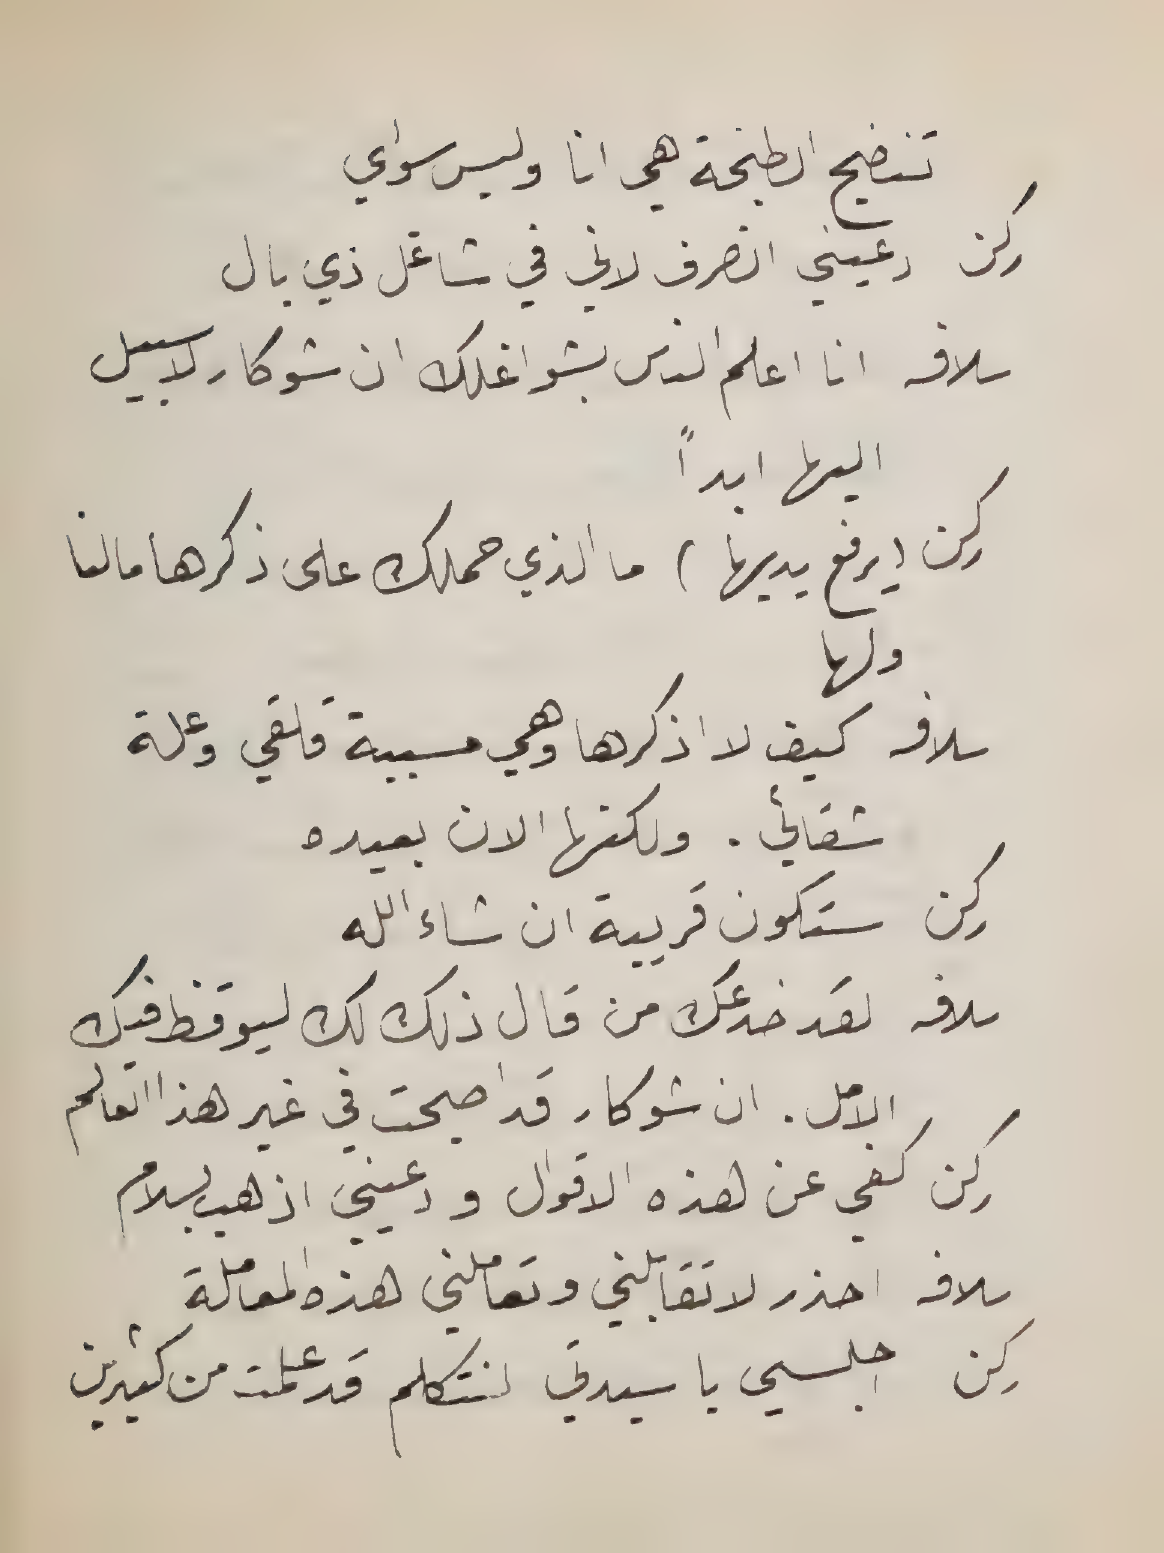 تنضج الطبخة هي انا وليس سواي
ركن دعيني انصرف لاني في شاغل ذي بال
سلافه انا اعلم الناس بشواغلك ان شوكار لا سبيل
اليها ابداً
ركن (يرفع يديها) ما الذي حملك على ذكرها مالنا
ولها
سلافه كيف لا اذكرها وهي مسببة قلقي وعلة
شقائي . ولكنها الان بعيده
ركن ستكون قريبة ان شاء الله
سلافه لقد خدعك من قال ذلك لك ليوقظ فيك
الامل . ان شوكار قد اصبحت في غير هذا العالم
ركن كفي عن هذه الاقوال ودعيني اذهب بسلام
سلافه احذر لا تقابلني وتعاملني هذه المعاملة
ركن اجلسي يا سيدتي لنتكلم قد علمت من كثيرين